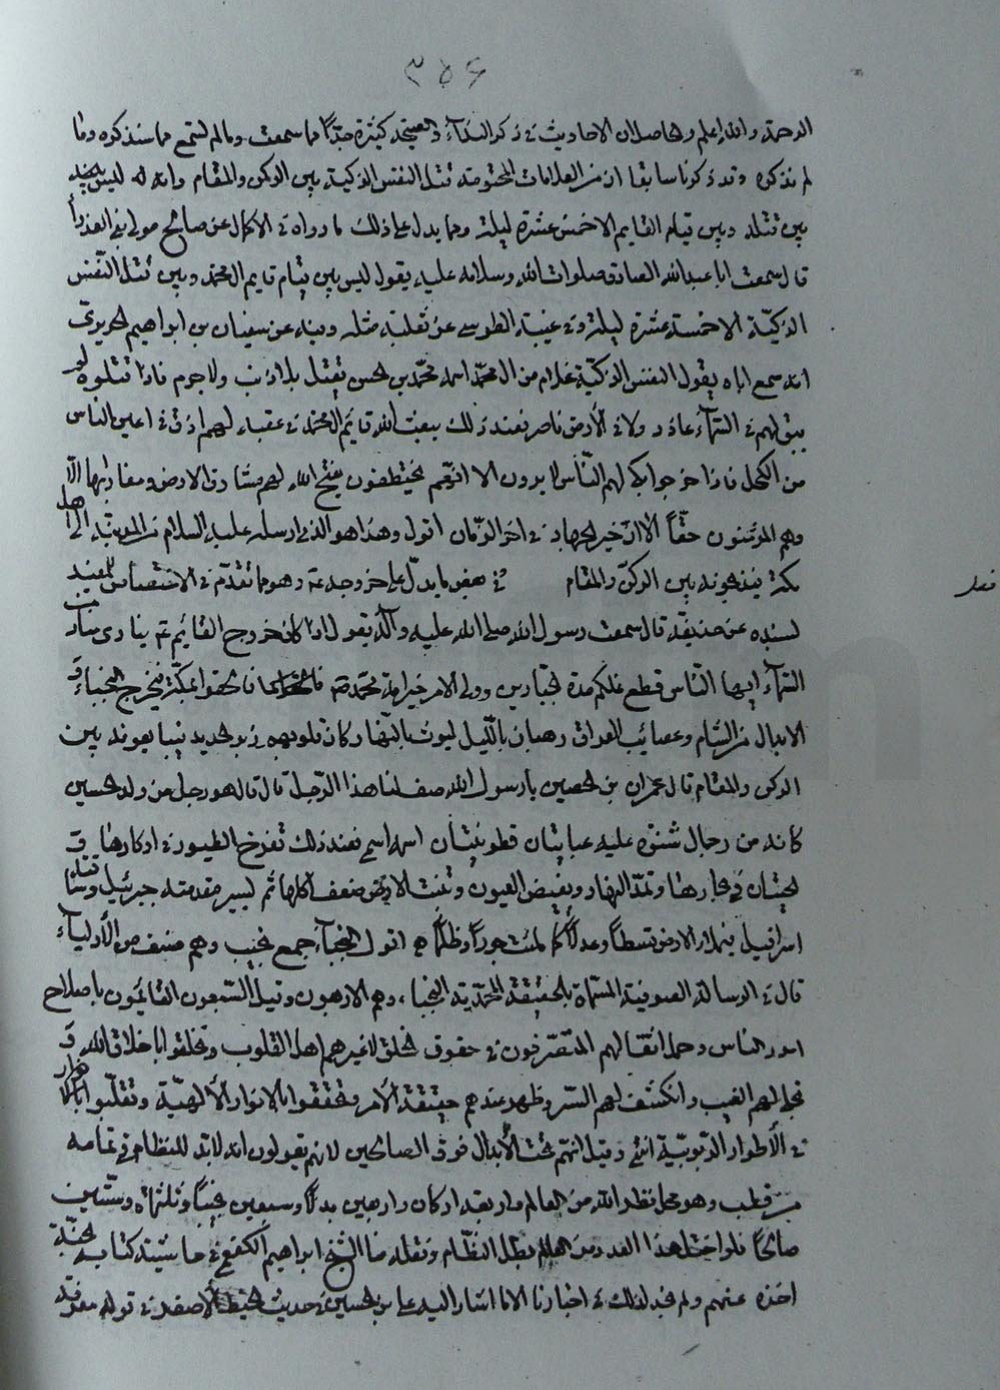 ٣٥۶
الرحمة والله اعلم والحاصل ان الاحاديث في ذكر النداء والصيحة كثيرة جدّاً مما سمعت ومالم تسمع مما سنذكره وما
لم نذكره وقد ذكرنا سابقا ان من العلامات المحتومة قتل النفس الذكية بين الركن والمقام وانه ليس
بين قتله وبين قيام القايم الا خمس عشرة ليلة ومما يدل على ذلك ما رواه في الاكمال عن صالح مولى بني العذرا
قال سمعت ابا عبدالله الصادق صلوات الله وسلامه عليه يقول ليس بين قيام قايم ال محمد وبين قتل النفس
الذكيّة الا خمسة عشرة ليلة وفي غيبة الطوسي عن ثعلبة مثله وفيه عن سفيان بن ابراهيم الحريري
انه سمع اباه يقول النفس الذكيّة غلام من ال محمّد اسمه محمّد بن الحسن يقتل بلا ذنب ولا جرم فاذا قتلوه لم
يبق لهم في السماء عاذر ولا في الأرض ناصر فعند ذلك يبعث الله قايم ال محمد في عصبة لهم ادق في اعين الناس
من الكحل فاذا خرجوا بكى لهم النّاس لا يرون الا انهم يختطفون يفتح الله لهم مشارق الارض ومغاربها الا
وهم المؤمنون حقّاً الا ان خير الجهاد في اخر الزمان اقول وهذا هو الذي ارسله عليه السلام من المدينة الى اهل
مكة فيذبحونه بين الركن والمقام في بعض ما يدلّ على خروجه وهو ما تقدّم في الاختصاص للمفيد
فصل
بسنده عن حذيفة قال سمعت رسول الله صلى الله عليه وآله يقول اذا كان خروج القايم ينادي مناد من
السماء ايها النّاس قطع عنكم مدة الجبارين وولى الامر خير امة محمّد فالحقوا بمكة فيخرج النجباء و
الابدال من الشام وعصائب العراق رهبان بالليل ليوث بالنهار كان قلوبهم زبر الحديد فيبايعونه بين
الركن والمقام قال عمران بن الحصين يا رسول الله صف لنا هذا الرجل قال هو رجل من ولد الحسين
كانه من رجال شنوة عليه عبايتان قطوانيتان اسمه اسمي فعند ذلك تفرخ الطيور في اوكارها و
الحيتان في بحارها وتمدّ الانهار وتفيض العيون وتنبت الارض ضعف اكلها ثم يسير مقدمته جبرئيل وساقته
اسرافيل فيملأ الارض قسطاً وعدلاً كما ملئت جوراً وظلماً اقول النجباء جمع نجيب وهم صنف من الأولياء
قال في الرسالة الصوفية المسماة بالحقيقة المحمّدية النجباء، وهم الاربعون وقيل السّبعون القائمون باصلاح
امور الناس وحمل اثقالهم المتصرفون في حقوق الخلق لا غير هم اهل القلوب وتخلقوا باخلاق الله و
تجلى لهم الغيب وانكشف لهم السّر وظهر عندهم حقيقة الامر وتحققوا بالانوار الالهيّة وتقلّبوا بالاطوار
في الأطوار الربوبيّة انتهى وقيل انهم تحت الأبدال فوق الصالحين لانهم يقولون انه لابد للنظام في تمامه
من قطب وهو محل نظر الله من العالم واربعة اركان واربعين بدلاً وسبعين نجيباً وثلثمائة وستّين
صالحاً فلو اختل هذا العدد من العالم بطل النظام ونقله الشيخ ابراهيم الكفعمي في حاشية كتابه الجنّة
اخذه عنهم ولم نجد لذلك في اخبارنا الا ما اشار اليه علي بن الحسين في حديث الخيط الأصفر في قوله معرفة